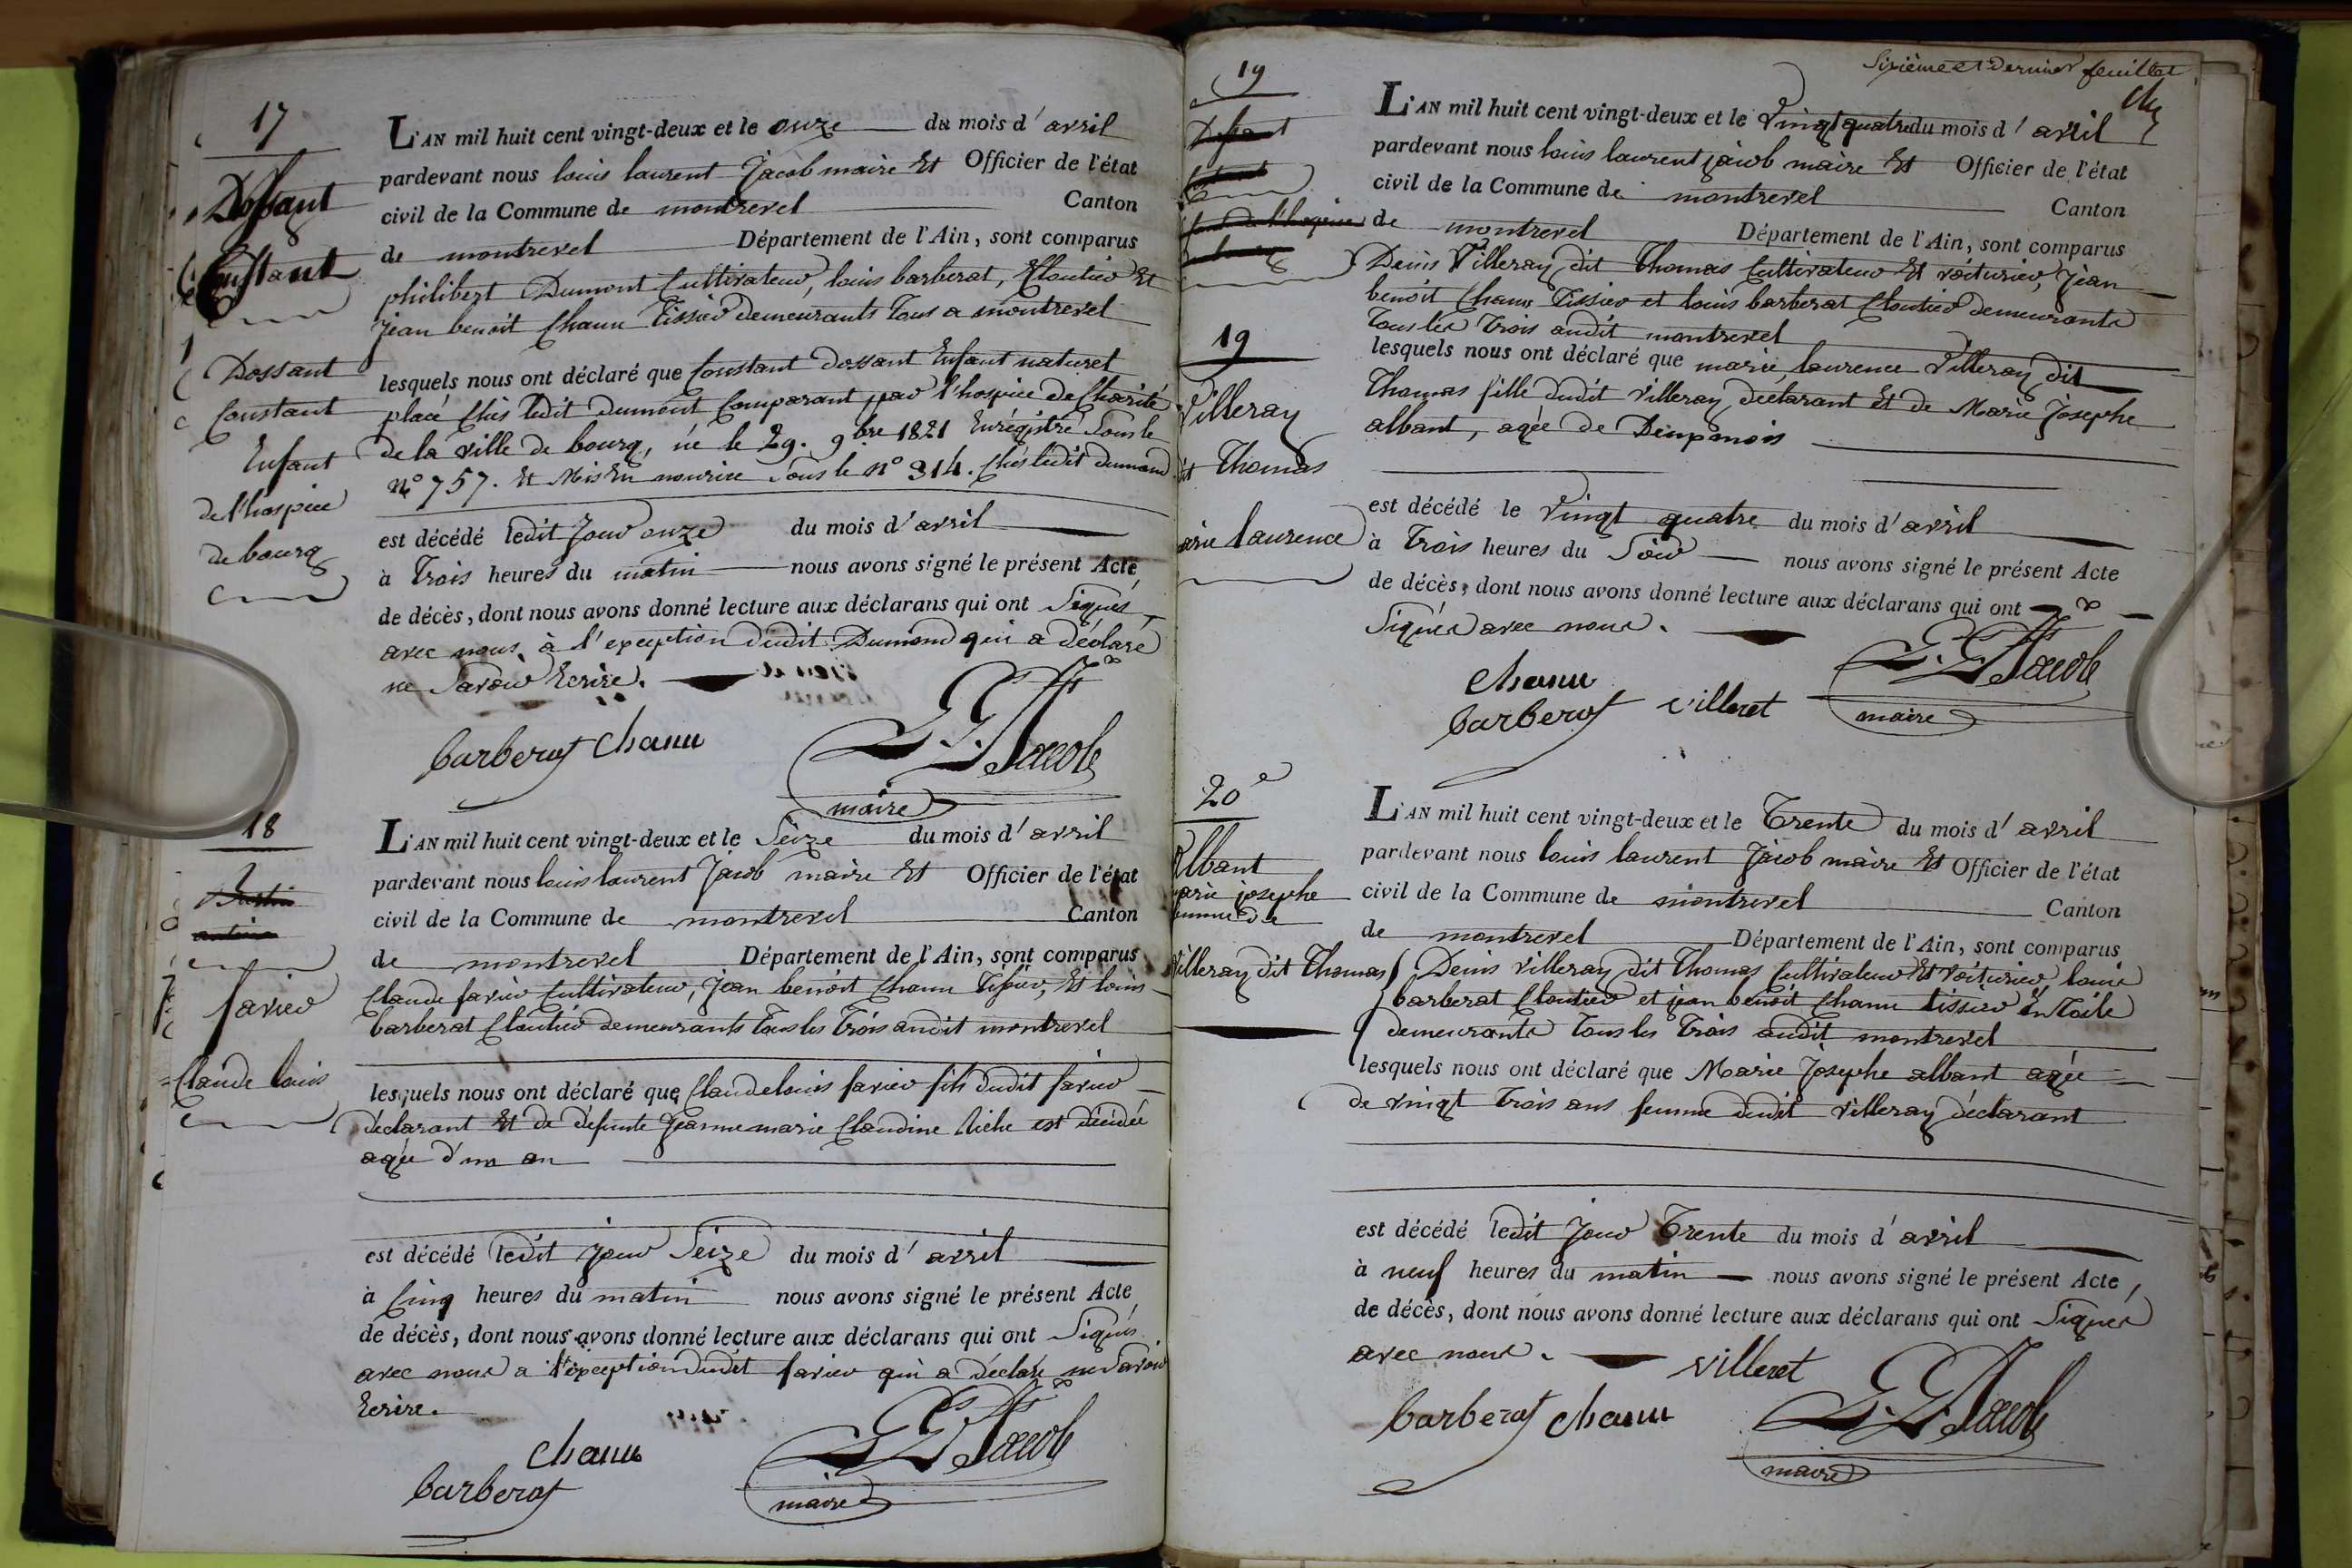 17
Dossant
Constant
Dossant
Constant
Enfant
de l'hospice
de bourg
L'AN mil huit cent vingt-deux et le onze du mois d'avril
pardevant nous louis laurent Jacob maire Et Officier de l'état
civil de la Commune de montrevel Canton
de montrevel Département de l'Ain, sont comparus
philibert Dumont Cultivateur, louis barberat, Cloutier Et
jean benoit Chanu Tissier demeurants Tous a montrevel
lesquels nous ont déclaré que Constant dossant Enfant naturel
placé Chés ledit dumont Comparant par l'hospice de Charité
de la ville de bourg, né le 29. 9bre 1821 Enrégistré Sous le
n° 757. Et Mis En nourice Sous le n° 314. Chés ledit dumond
est décédé ledit Jour onze du mois d'avril
à Trois heures du matin nous avons signé le présent Acte
de décès, dont nous avons donné lecture aux déclarans qui ont Signés
avec nous, à l'exception dudit Dumond qui a déclaré
ne Savoir Ecrire.
barberat Chanu L. L. Jacob
maire
18
farier
Claude louis
L'AN mil huit cent vingt-deux et le Seize du mois d'avril
pardevant nous louis laurent Jacob maire Et Officier de l'état
civil de la Commune de montrevel Canton
de montrevel Département de l'Ain, sont comparus
Claude farier Cultivateur, Jean benoit Chanu Tissier, Et louis
barberat Cloutier demeurants Tous les Trois audit montrevel
lesquels nous ont déclaré que Claude louis farier fils dudit farier
déclarant Et de défunte Jeanne marie Claudine Riche est décédé
agée d'un an
est décédé ledit jour Seize du mois d'avril
à Cinq heures du matin nous avons signé le présent Acte
de décès, dont nous avons donné lecture aux déclarans qui ont Signés
avec nous a l'exception dudit farier qui a déclaré ne Savoir
Ecrire.
Chanu
barberat L. L. Jacob
maire
Sixième et Dernier feuillet
19
19
Villeray
dit Thomas
arie laurence
L'AN mil huit cent vingt-deux et le Vingt quatre du mois d'avril
pardevant nous louis laurent jacob maire Et Officier de l'état
civil de la Commune de montrevel Canton
de montrevel Département de l'Ain, sont comparus
Denis Villeray dit Thomas Cultivateur Et voiturier, Jean
benoit Chanu Tissier et louis barberat Cloutier demeurants
Tous les Trois audit montrevel
lesquels nous ont déclaré que marie laurence Villeray dit
Thomas fille dudit Villeray déclarant Et de Marie Josephe
albant, agée de Deux mois
est décédé le Vingt quatre du mois d'avril
à Trois heures du Soir nous avons signé le présent Acte
de décès, dont nous avons donné lecture aux déclarans qui ont
Signés avec nous.
Chanu
barberat villeret L. L. Jacob
maire
20e
Albant
arie josephe
femme de
Villeray dit Thomas
L'AN mil huit cent vingt-deux et le Trente du mois d'avril
pardevant nous louis laurent Jacob maire Et Officier de l'état
civil de la Commune de montrevel Canton
de montrevel Département de l'Ain, sont comparus
Denis villeray dit Thomas Cultivateur Et voiturier, louis
barberat Cloutier et jean benoit Chanu tissier En Toile
demeurants Tous les Trois audit montrevel
lesquels nous ont déclaré que Marie Josephe albant agée
de vingt Trois ans femme dudit villeray déclarant
est décédé ledit Jour Trente du mois d'avril
à neuf heures du matin nous avons signé le présent Acte,
de décès, dont nous avons donné lecture aux déclarans qui ont Signés
avec nous. villeret
barberat Chanu L. L. Jacob
maire